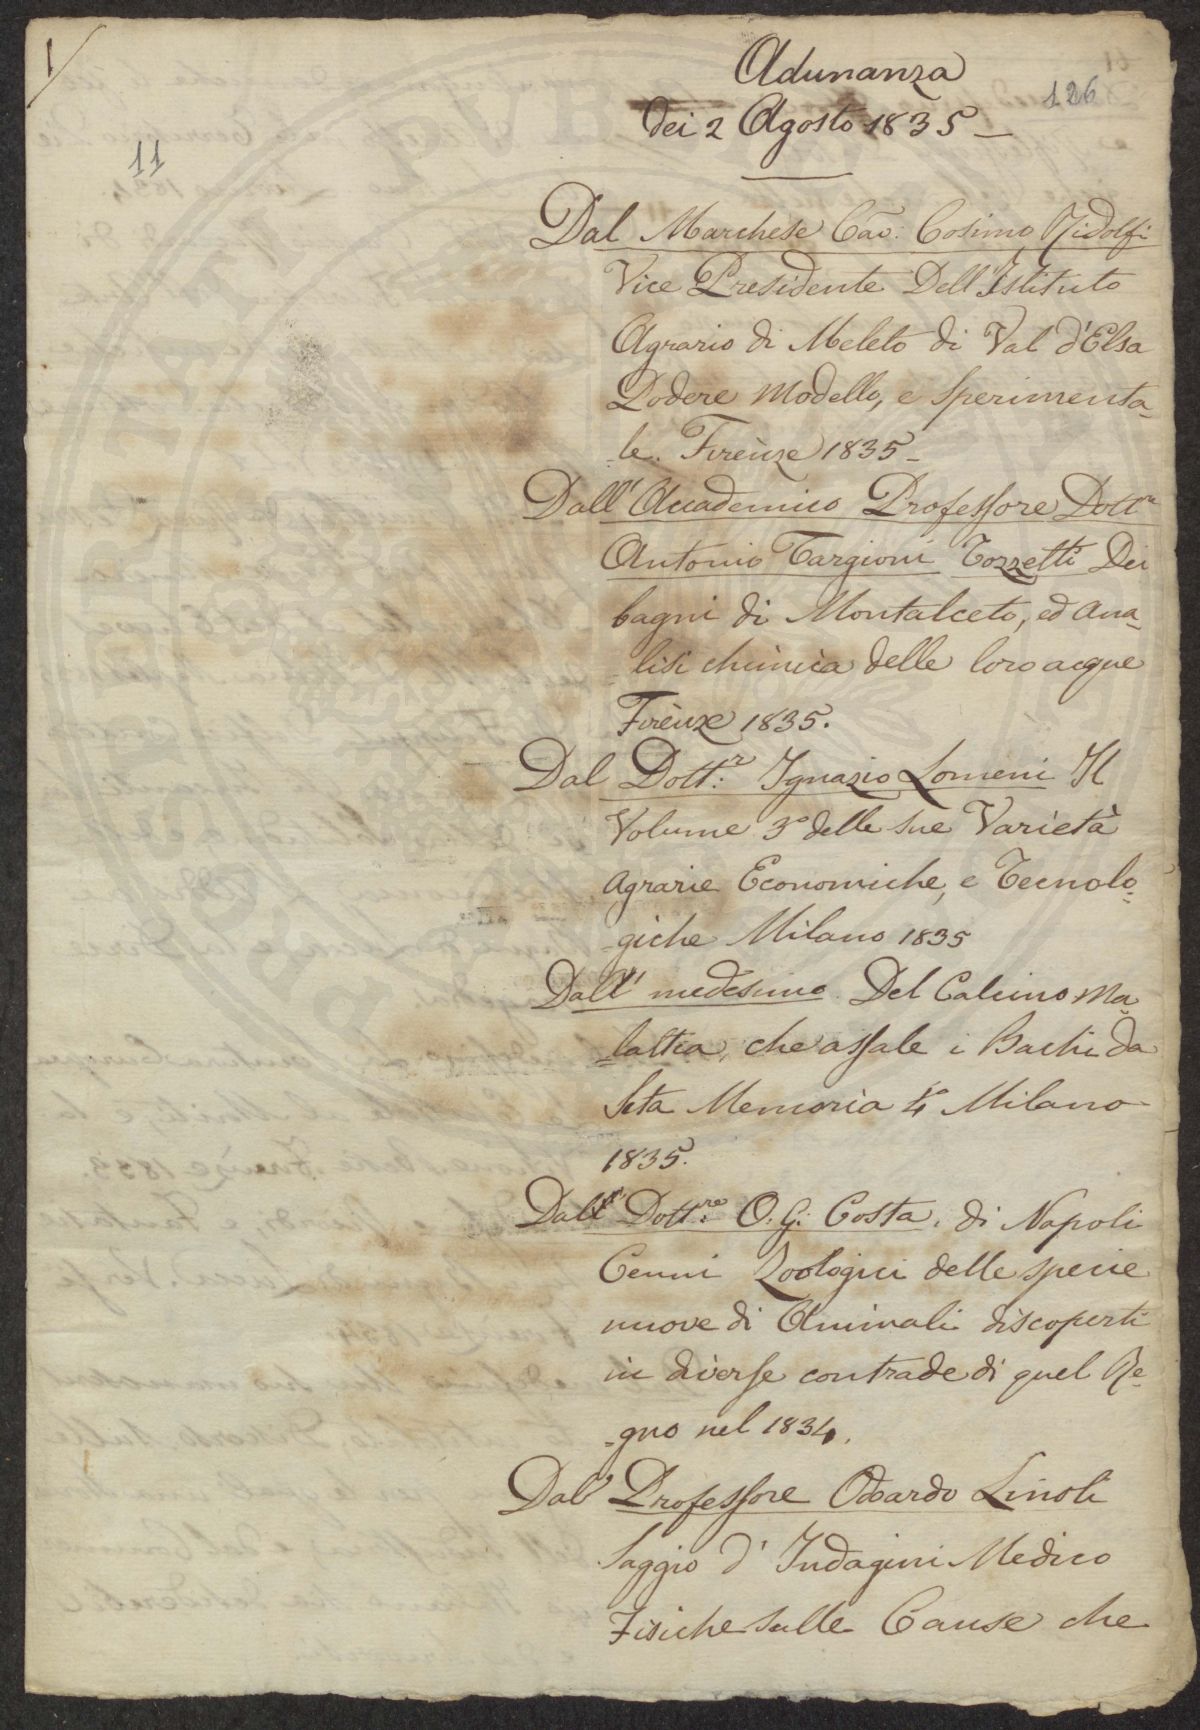 1
Adunanza
126
dei 2 Agosto 1835 _
11
Dal Marchese Cav: Cosimo Ridolfi
Vice Presidente Dell'Istituto
Agrario di Meleto di Val d'Elsa
Podere modello, e sperimenta-
-le. Firenze 1835 _
Dall'Accademico Professore Dott.re
Antonio Targioni Tozzetti Dei
bagni di Montalceto, ed ana-
=lisi chimica delle loro acque
Firenze 1835.
Dal Dott.r Ignazio Lomeni Il
Volume 3º delle sue Varietà
agrarie Economiche, e Tecnolo-
-giche Milano 1835
Dall' medesimo Del Calcino Ma-
-lattia, che assale i Bachi da
Seta Memoria 4a Milano
1835.
Dal Dott.re O. G. Costa, di Napoli
Cenni Zoologici delle specie
nuove di Animali discoperti
in diverse contrade di quel Re-
-gno nel 1834.
Dal Professore Odoardo Linoli
Saggio d' Indagini Medico
Fisiche sulle Cause che